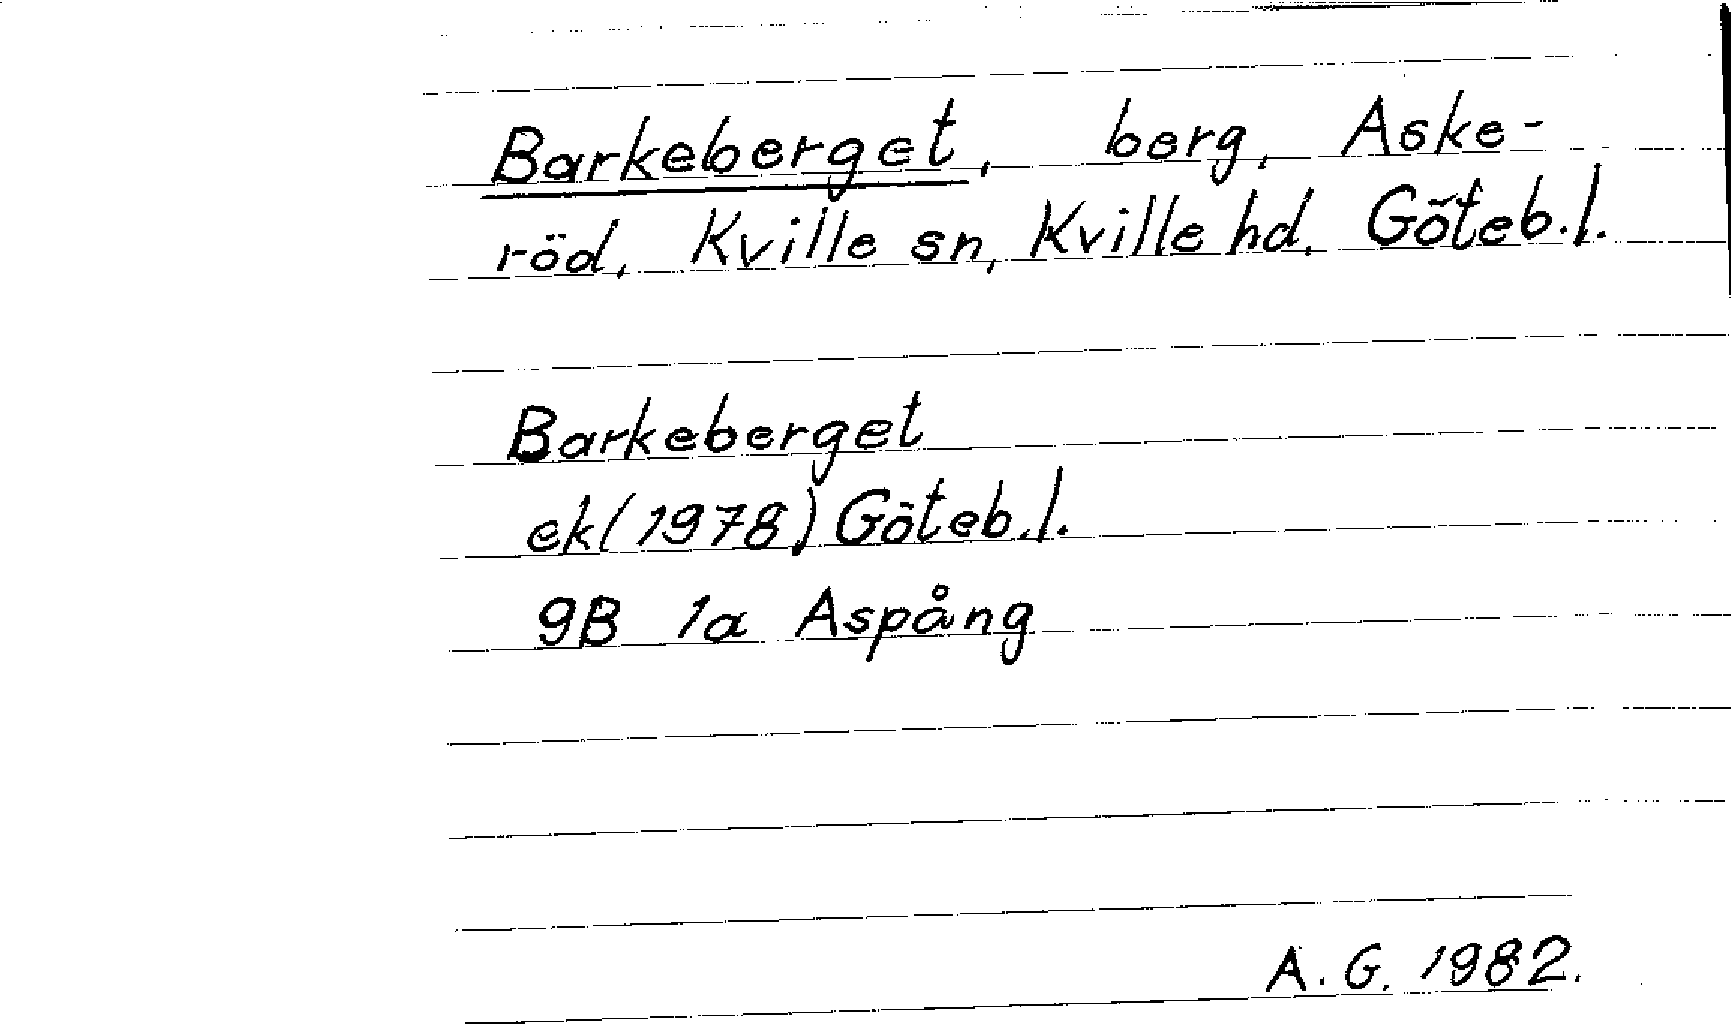 Barkeberget, berg, Aske-
röd, Kville sn, Kville hd, Göteb.l.
Barkeberget
ek(1978) Göteb.l.
9B 1a Aspång
A.G. 1982.